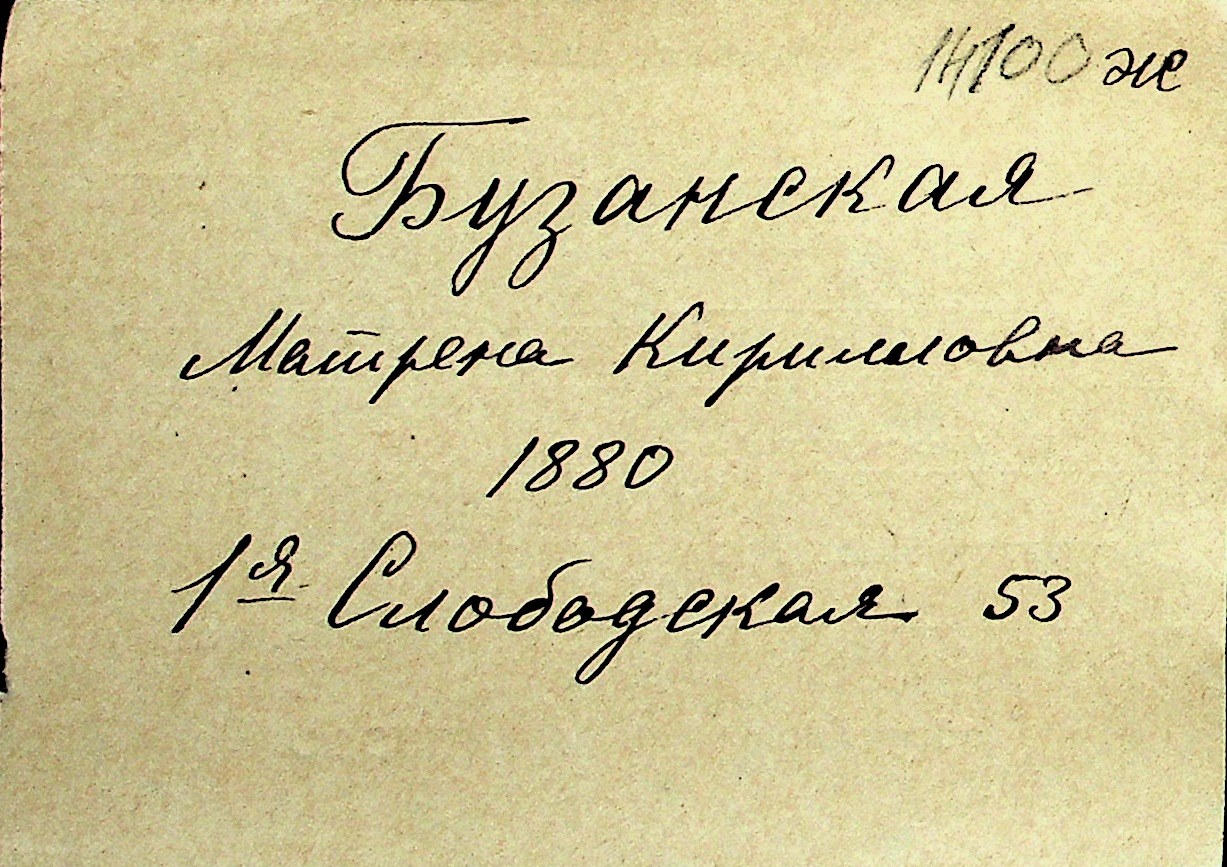 14100 ж
Бузанская
Матрена Кирилловна
1880
1я Слободская 53